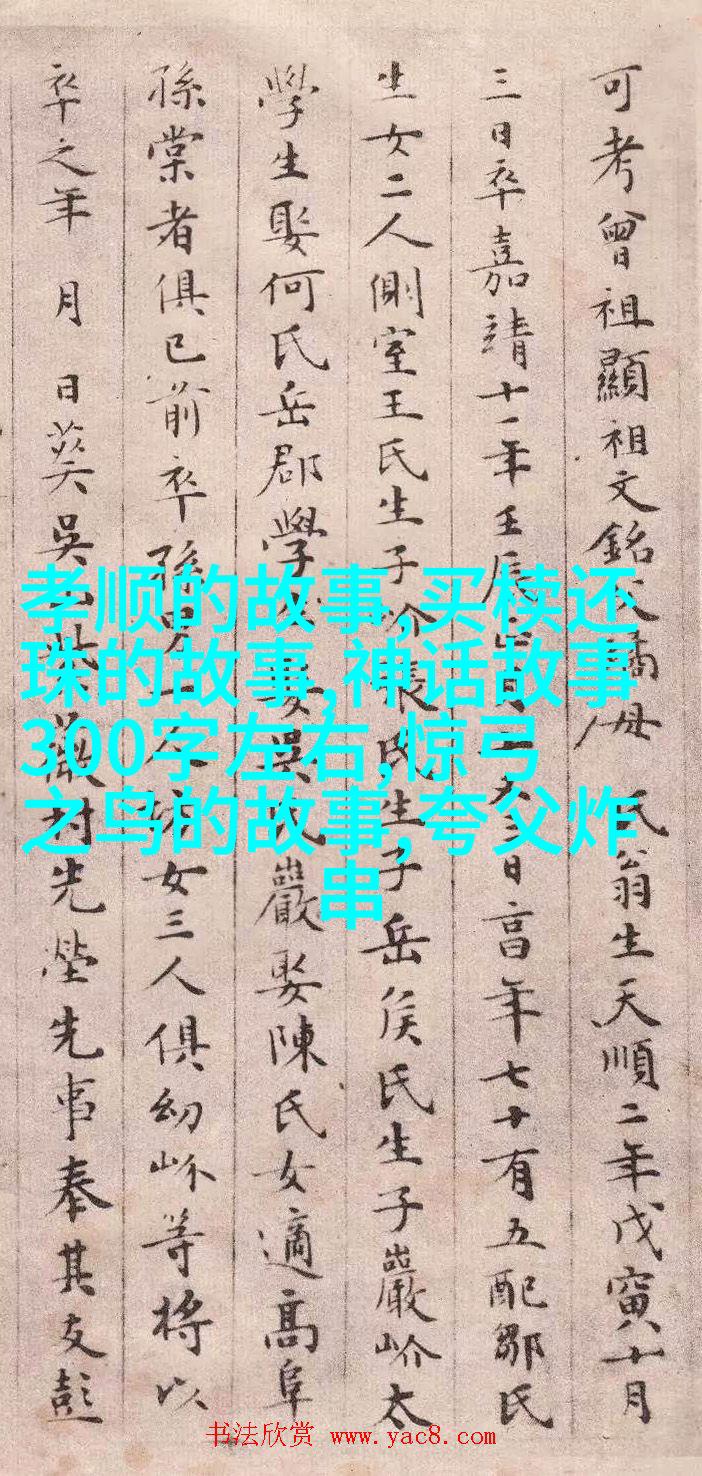 可考曾祖顯祖文銘父母 氏翁生天順二年戊寅十月
三日卒嘉靖十一年壬辰月又三日享年七十有五配鄒氏
生女二人側室王氏生子張氏生子岳侯氏生子巖岕太
學生娶何氏岳郡學娶吳氏巖娶陳氏女適高阜
孫棠者俱已前卒孫男人女三人俱幼岕等將以
卒之年 月 日葬吳山紫薇村先塋先事奉其友彭
孝顺的故事,买椟还
珠的故事,神话故事
300字左右,惊弓
之鸟的故事,夸父炸
串
书法欣赏 www.yac8.com